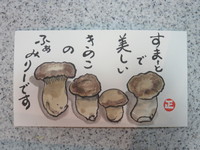 すまーとで
美しい
きのこ
の
ふぁみりーです
正